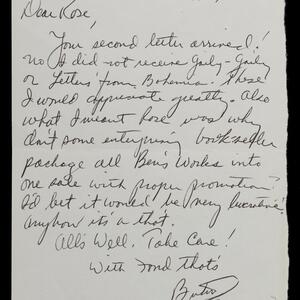 Dear Rose,
Your second letter arrived!
No I did not receive Gaily-Gaily
or Letters from Bohemia. These
I would appreciate greatly. Also
what I meant Rose was why
don't some enterprising bookseller
package all Ben's works into
one sale with proper promotion?
I'd bet it would be very lucrative!
Anyhow it's a that.
All's Well. Take Care!
With Fond thots